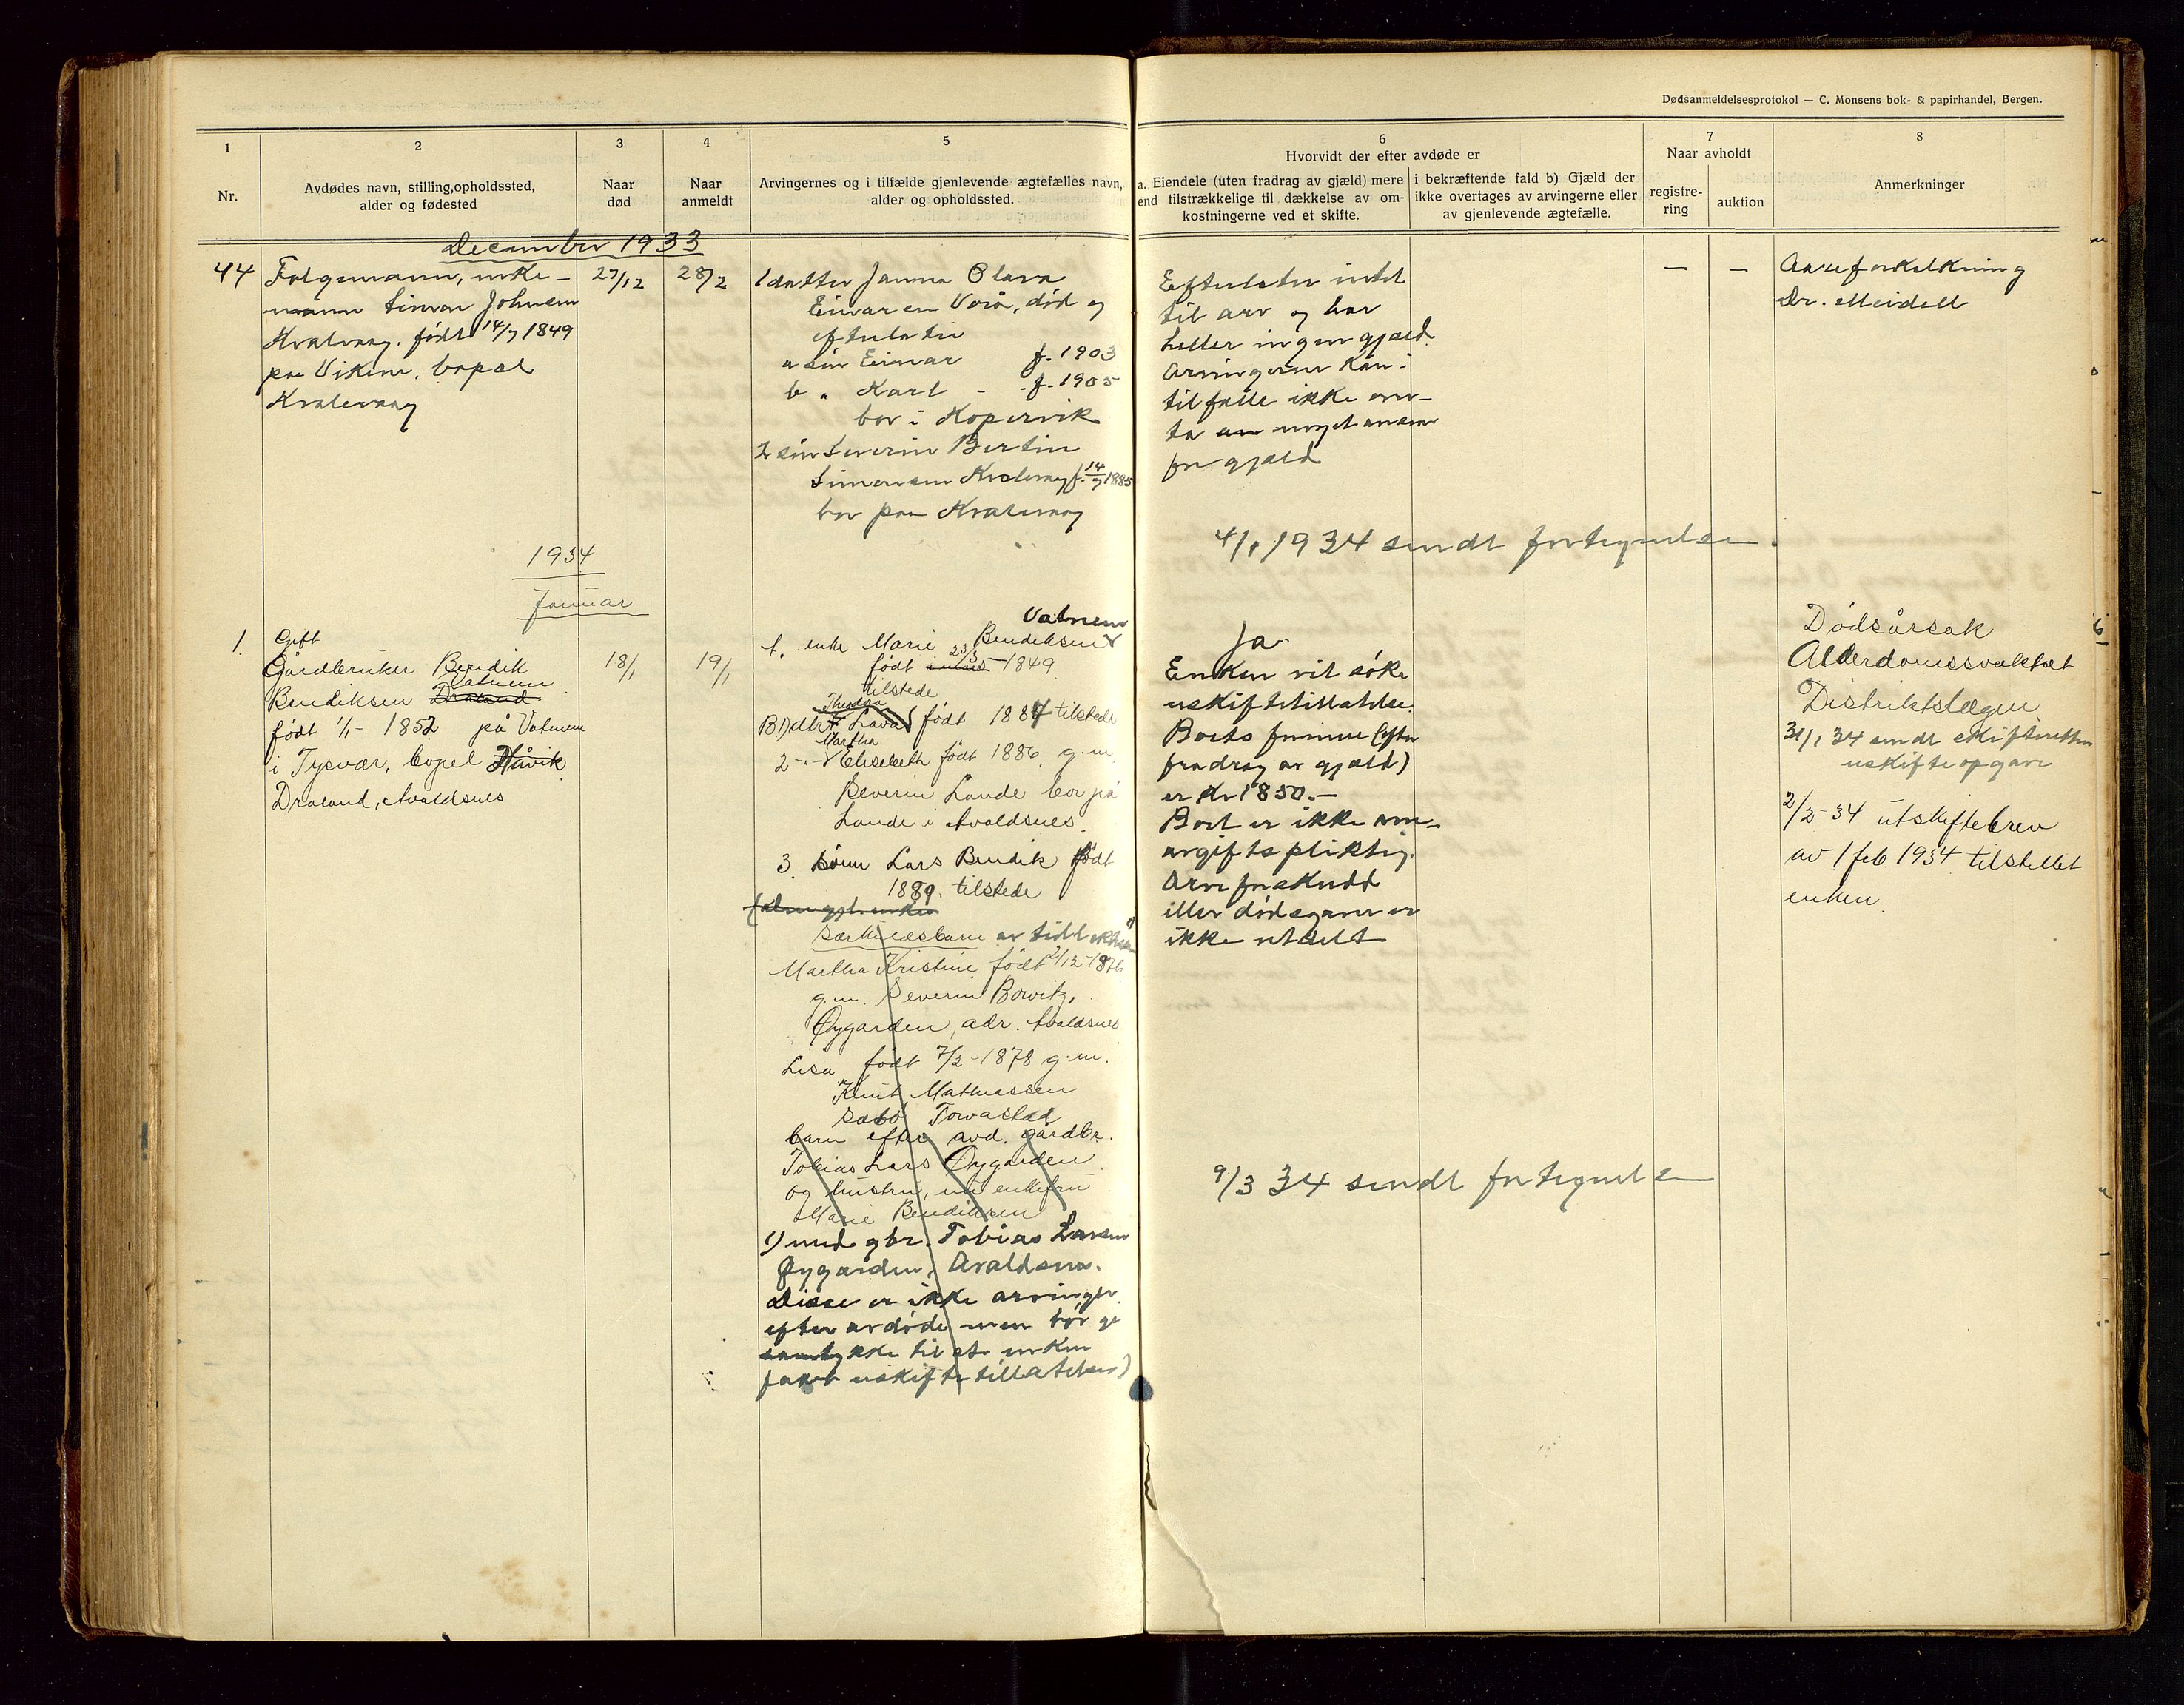 Dødsanmeldelsesprotokol — C. Monsens bok- & papirhandel, Bergen.
1
Nr.
2
Avdødes navn, stilling, opholdssted,
alder og fødested
3
Naar
død
4
Naar
anmeldt
5
Arvingernes og i tilfælde gjenlevende ægtefælles navn,
alder og opholdssted.
6
Hvorvidt der efter avdøde er
a. Eiendele (uten fradrag av gjæld) mere
end tilstrækkelige til dækkelse av om-
kostningerne ved et skifte.
i bekræftende fald b) Gjæld der
ikke overtages av arvingerne eller
av gjenlevende ægtefælle.
7
Naar avholdt
registre-
ring
auktion
8
Anmerkninger
December 1933
44
Folgemann, enke-
mann Simon Johnsen
Kvalevaag. født 14/7 1849
paa Vikene, bopæl
Kvalevaag
27/12
28/2
1 datter Janna Olava
Einarsen Vorå, død og
efterlater
a søn Einar f. 1903
b " Karl - f. 1905
bor i Kopervik
2 søn Severin Bertin
Simonsen Kvalevaag f. 14/7 1885
bor paa Kvalevaag
Efterlater intet
til arv og har
heller ingen gjæld.
Arvingerne kan i
tilfælle ikke over-
ta noget ansvar
for gjæld
—
—
Aareforkalkning
Dr. Meidell
4/1 1934 sendt fortegnelse.
1934
Januar
1.
Gift
Gårdbruker Bendik
Vatnem
Bendiksen Draland
født 1/1 - 1852 på Vatnem
i Tysvær, bopel Håvik
Draland, Avaldsnes
18/1
19/1
Vatnem
A. enke Marie Bendiksen
født 23/3 - 1849
tilstede
Theodora
B 1) dtr Lava født 1884 tilstede
Martha
2 - " - Elisebeth født 1886, g.m.
Severin Lande bor på
Lande i Avaldsnes.
3. sønn Lars Bendik født
1889. tilstede
særkulsbarn av tidl ekteskap 1)
Martha Kristine født 2/12-1876
g.m. Severin Bowitz,
Øygarden, adr. Avaldsnes
Lisa født 7/2-1878 g.m.
Knut Mathiassen
Sæbø Torvastad
barn efter avd. gårdbr.
Tobias Lars Øygarden
og hustru, nu enkefru
Marie Bendiksen
1) med gbr. Tobias Larsen
Øygarden, Avaldsnes.
Disse er ikke arvinger
efter avdøde men bør gi
samtykke til at enken
faar uskiftetillatelse)
Ja
Enken vil søke
uskiftetillatelse.
Boets formue (efter
fradrag av gjæld)
er kr 1850.-
Boet er ikke arve-
avgiftspliktig.
Arveforskudd
eller dødsgaver er
ikke utdelt
9/3 34 sendt fortegnelse
Dødsårsak
Alderdomssvakhet
Distriktslægen
31/1 34 sendt skifteretten
uskifteopgave
2/2-34 utskiftebrev
av 1 feb. 1934 tilstillet
enken.